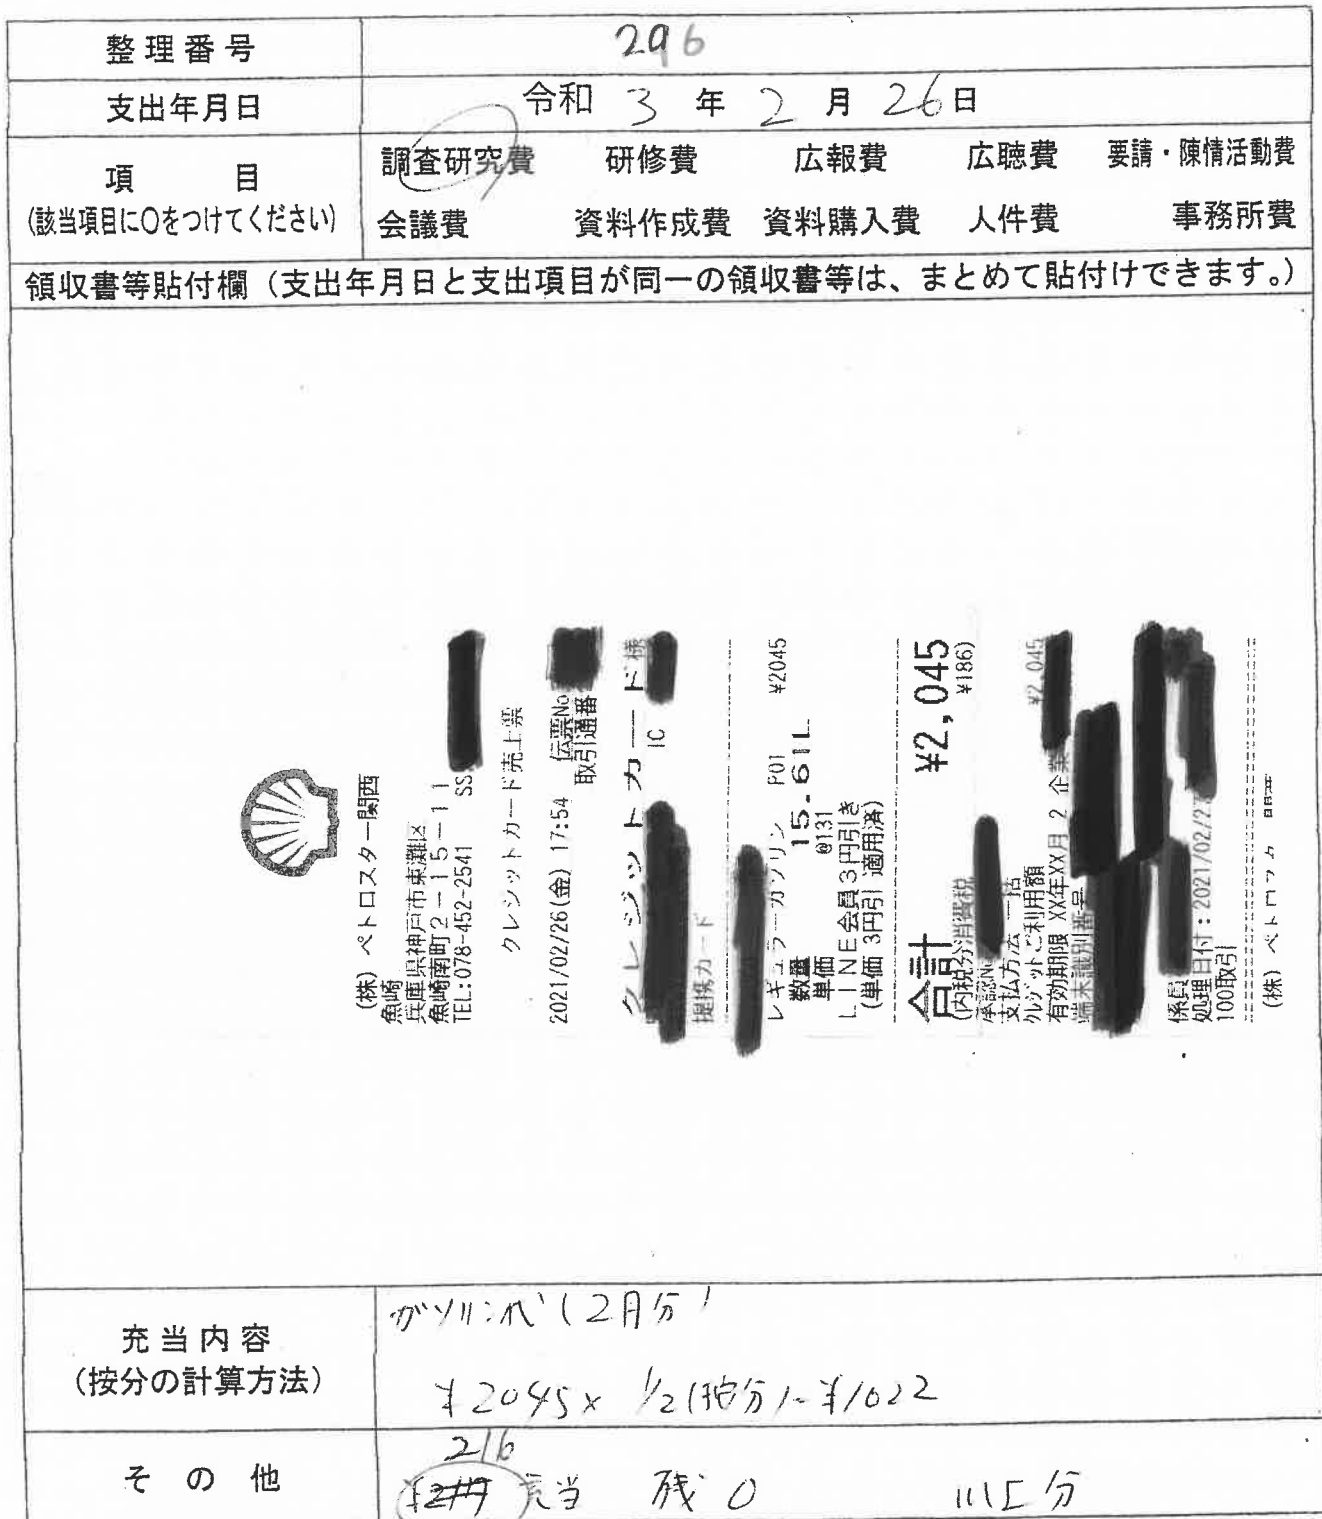 整理番号 296
支出年月日 令和 3 年 2 月 26 日
項 目
(該当項目に〇をつけてください)
調査研究費 研修費 広報費 広聴費 要請・陳情活動費
会議費 資料作成費 資料購入費 人件費 事務所費
領収書等貼付欄（支出年月日と支出項目が同一の領収書等は、まとめて貼付けできます。）
(株) ペトロスター関西
魚崎
兵庫県神戸市東灘区
魚崎南町2-15-11
TEL:078-452-2541 SS
クレジットカード売上票
2021/02/26(金) 17:54 伝票No
取引通番
クレジットカード 様
IC
提携カード
レギュラーガソリン P01 ¥2045
数量 15.61L
単価 @131
LINE会員3円引き
(単価 3円引 適用済)
合計 ¥2,045
(内税分消費税 ¥186)
承認No
支払方法 一括
クレジットご利用額 ¥2,045
有効期限 XX年XX月 2 企業
端末識別番号
係員
処理日付:2021/02/2
100取引
(株) ペトロスタ 関西
充当内容
(按分の計算方法)
ガソリン代(2月分)
¥2045× 1/2(按分)=¥1022
その他
216
充当 残 0 分